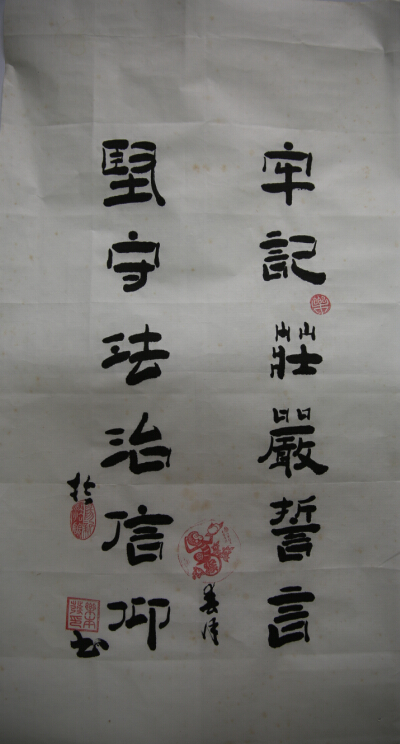 牢記莊嚴誓言
堅守法治信仰
書